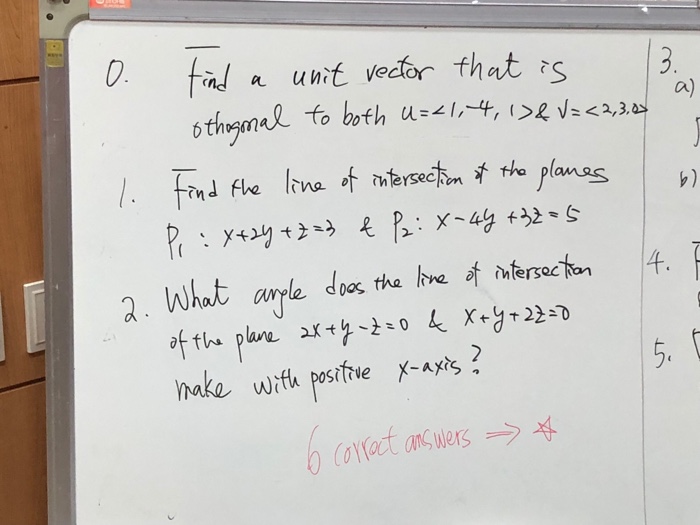 0. Find a unit vector that is
othogonal to both u=<1,-4,1>& v=<2,3,0>
1. Find the line of intersection of the planes
P₁ : x+2y+z=3 & P₂: x-4y+3z=5
2. What angle does the line of intersection
of the plane 2x+y-z=0 & x+y+2z=0
make with positive x-axis?
6 correct answers ⇒ ☆
3.
a)
b)
4.
5.